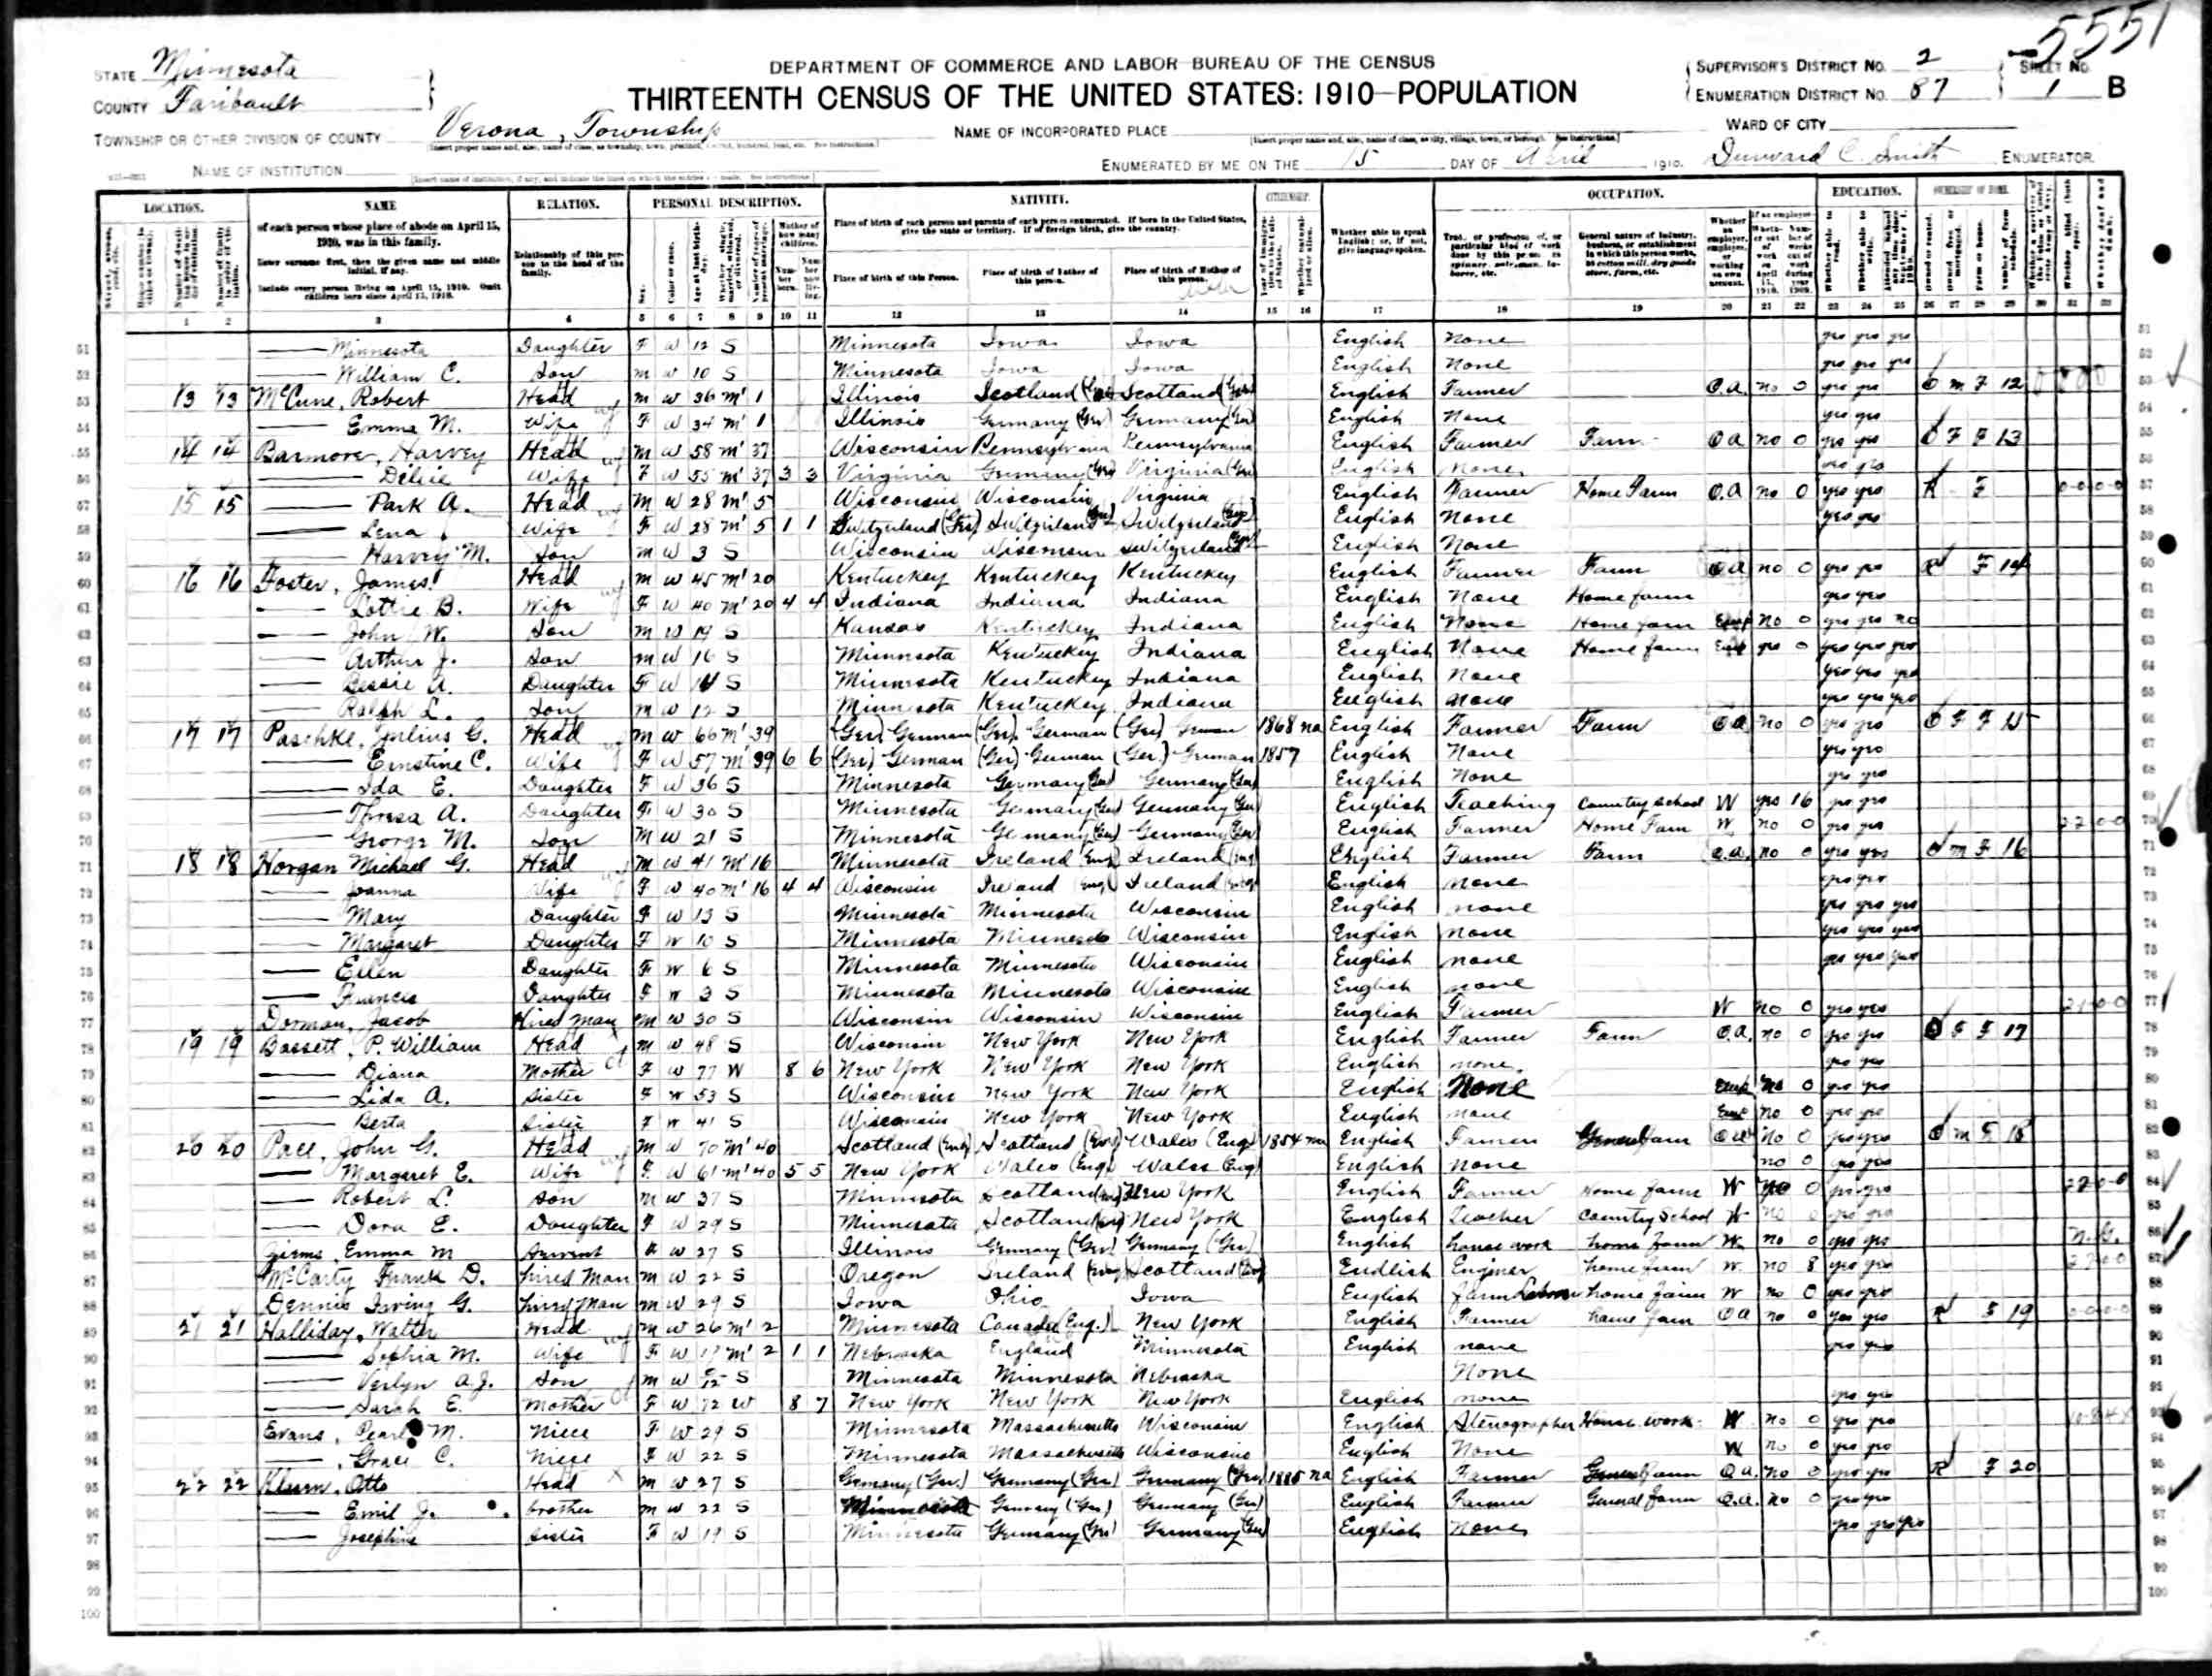 5551
STATE Minnesota
COUNTY Faribault
DEPARTMENT OF COMMERCE AND LABOR-BUREAU OF THE CENSUS
THIRTEENTH CENSUS OF THE UNITED STATES: 1910-POPULATION
SUPERVISOR'S DISTRICT NO. 2
ENUMERATION DISTRICT NO. 87
SHEET NO. 1 B
TOWNSHIP OR OTHER DIVISION OF COUNTY Verona, Township
NAME OF INCORPORATED PLACE
WARD OF CITY
NAME OF INSTITUTION
ENUMERATED BY ME ON THE 15 DAY OF April 1910. Durward C. Smith ENUMERATOR.
LOCATION. NAME RELATION. PERSONAL DESCRIPTION. NATIVITY. CITIZENSHIP. OCCUPATION. EDUCATION. OWNERSHIP OF HOME.
of each person whose place of abode on April 15, 1910, was in this family.
Enter surname first, then the given name and middle initial, if any.
Include every person living on April 15, 1910. Omit children born since April 15, 1910.
Relationship of this person to the head of the family.
Place of birth of each person and parents of each person enumerated. If born in the United States, give the state or territory. If of foreign birth, give the country.
Place of birth of this Person. Place of birth of Father of this person. Place of birth of Mother of this person.
Whether able to speak English; or, if not, give language spoken.
1 2 3 4 5 6 7 8 9 10 11 12 13 14 15 16 17 18 19 20 21 22 23 24 25 26 27 28 29 30 31 32
51 — Minnesota Daughter F W 12 S Minnesota Iowa Iowa English None yes yes yes
52 — William C. Son M W 10 S Minnesota Iowa Iowa English None yes yes yes
53 13 13 McCune, Robert Head M W 36 M1 1 Illinois Scotland Scotland English Farmer O.A. no 0 yes yes O M F 12
54 — Emma M. Wife F W 34 M1 1 Illinois Germany (Ger) Germany (Ger) English None yes yes
55 14 14 Barmore, Harvey Head M W 58 M1 37 Wisconsin Pennsylvania Pennsylvania English Farmer Farm O A no 0 yes yes O F F 13
56 — Wife F W 55 M1 37 3 3 Virginia Germany (Ger) Virginia English None yes yes
57 15 15 — Park A. Head M W 28 M1 5 Wisconsin Wisconsin Virginia English Farmer Home Farm O.A no 0 yes yes R F
58 — Lena Wife F W 28 M1 5 1 1 Switzerland (Ger) Switzerland (Ger) Switzerland (Ger) English None yes yes
59 — Harvey M. Son M W 3 S Wisconsin Wisconsin Switzerland English None
60 16 16 Foster, James Head M W 45 M1 20 Kentucky Kentucky Kentucky English Farmer Farm O A no 0 yes yes R F 14
61 — Lottie B. Wife F W 40 M1 20 4 4 Indiana Indiana Indiana English None Home farm yes yes
62 — John W. Son M W 19 S Kansas Kentucky Indiana English None Home farm Emp no 0 yes yes no
63 — Arthur J. Son M W 16 S Minnesota Kentucky Indiana English None Home farm Emp yes 0 yes yes yes
64 — Bessie A. Daughter F W 14 S Minnesota Kentucky Indiana English None yes yes yes
65 — Ralph L. Son M W 12 S Minnesota Kentucky Indiana English None yes yes yes
66 17 17 Paschke, Julius C. Head M W 66 M1 39 (Ger) German (Ger) German (Ger) German 1868 na English Farmer Farm O A no 0 yes yes O F F 15
67 — Ernstine C. Wife F W 57 M1 39 6 6 (Ger) German (Ger) German (Ger.) German 1857 English None yes yes
68 — Ida E. Daughter F W 36 S Minnesota Germany (Ger) Germany (Ger) English None yes yes
69 — Thresa A. Daughter F W 30 S Minnesota Germany (Ger) Germany (Ger) English Teaching Country School W yes 16 yes yes
70 — George M. Son M W 21 S Minnesota Germany (Ger) Germany (Ger) English Farmer Home Farm W no 0 yes yes
71 18 18 Horgan Michael G. Head M W 41 M1 16 Minnesota Ireland (Eng) Ireland (Eng) English Farmer Farm O.A. no 0 yes yes O M F 16
72 — Joanna Wife F W 40 M1 16 4 4 Wisconsin Ireland (Eng) Ireland (Eng) English None yes yes
73 — Mary Daughter F W 13 S Minnesota Minnesota Wisconsin English None yes yes yes
74 — Margaret Daughter F W 10 S Minnesota Minnesota Wisconsin English None yes yes yes
75 — Ellen Daughter F W 6 S Minnesota Minnesota Wisconsin English None yes yes yes
76 — Francis Daughter F W 3 S Minnesota Minnesota Wisconsin English None
77 Dorman, Jacob Hired Man M W 30 S Wisconsin Wisconsin Wisconsin English Farmer W no 0 yes yes
78 19 19 Bassett, P. William Head M W 48 S Wisconsin New York New York English Farmer Farm O.A. no 0 yes yes O F F 17
79 — Diana Mother F W 77 W 8 6 New York New York New York English None yes yes
80 — Lida A. Sister F W 53 S Wisconsin New York New York English None Emp No 0 yes yes
81 — Berta Sister F W 41 S Wisconsin New York New York English None Emp no 0 yes yes
82 20 20 Pace, John G. Head M W 70 M1 40 Scotland (Eng) Scotland (Eng) Wales (Eng) 1854 na English Farmer General farm O A no 0 yes yes O M F 18
83 — Margaret E. Wife F W 61 M1 40 5 5 New York Wales (Eng) Wales (Eng) English None no 0 yes yes
84 — Robert L. Son M W 37 S Minnesota Scotland (Eng) New York English Farmer Home farm W 0 yes yes
85 — Dora E. Daughter F W 29 S Minnesota Scotland (Eng) New York English Teacher Country School W no 0 yes yes
86 Emma M Servant W 27 S Illinois Germany (Ger) Germany (Ger) English house work home farm W no 0 yes yes
87 McCarty Frank D. hired Man M W 22 S Oregon Ireland (Eng) Scotland (Eng) Endlish Enginer home farm W. no 8 yes yes
88 Dennis Irving G. hired Man M W 29 S Iowa Ohio Iowa English farm Labor home farm W no 0 yes yes
89 21 21 Halliday, Walter Head M W 26 M1 2 Minnesota Canada (Eng.) New York English Farmer home farm O A no 0 yes yes R F 19
90 — Sophia M. Wife F W 17 M1 2 1 1 Nebraska England Minnesota English none yes yes
91 — Verlyn A.J. Son M W S Minnesota Minnesota Nebraska None
92 — Sarah E. Mother F W 72 W 8 7 New York New York New York English none yes yes
93 Evans, Pearl M. Niece F W 29 S Minnesota Massachusetts Wisconsin English Stenographer House work W no 0 yes yes
94 — , Grace C. Niece F W 22 S Minnesota Massachusetts Wisconsin English None W no 0 yes yes
95 22 22 Klum, Otto Head M W 27 S Germany (Ger.) Germany (Ger) Germany (Ger) 1885 na English Farmer General farm O A. no 0 yes yes R F 20
96 — Emil J. brother M W 22 S Minnesota Germany (Ger) Germany (Ger) English Farmer General farm O.A. no 0 yes yes
97 — Josephine Sister F W 19 S Minnesota Germany (Ger) Germany (Ger) English None yes yes yes
98
99
100